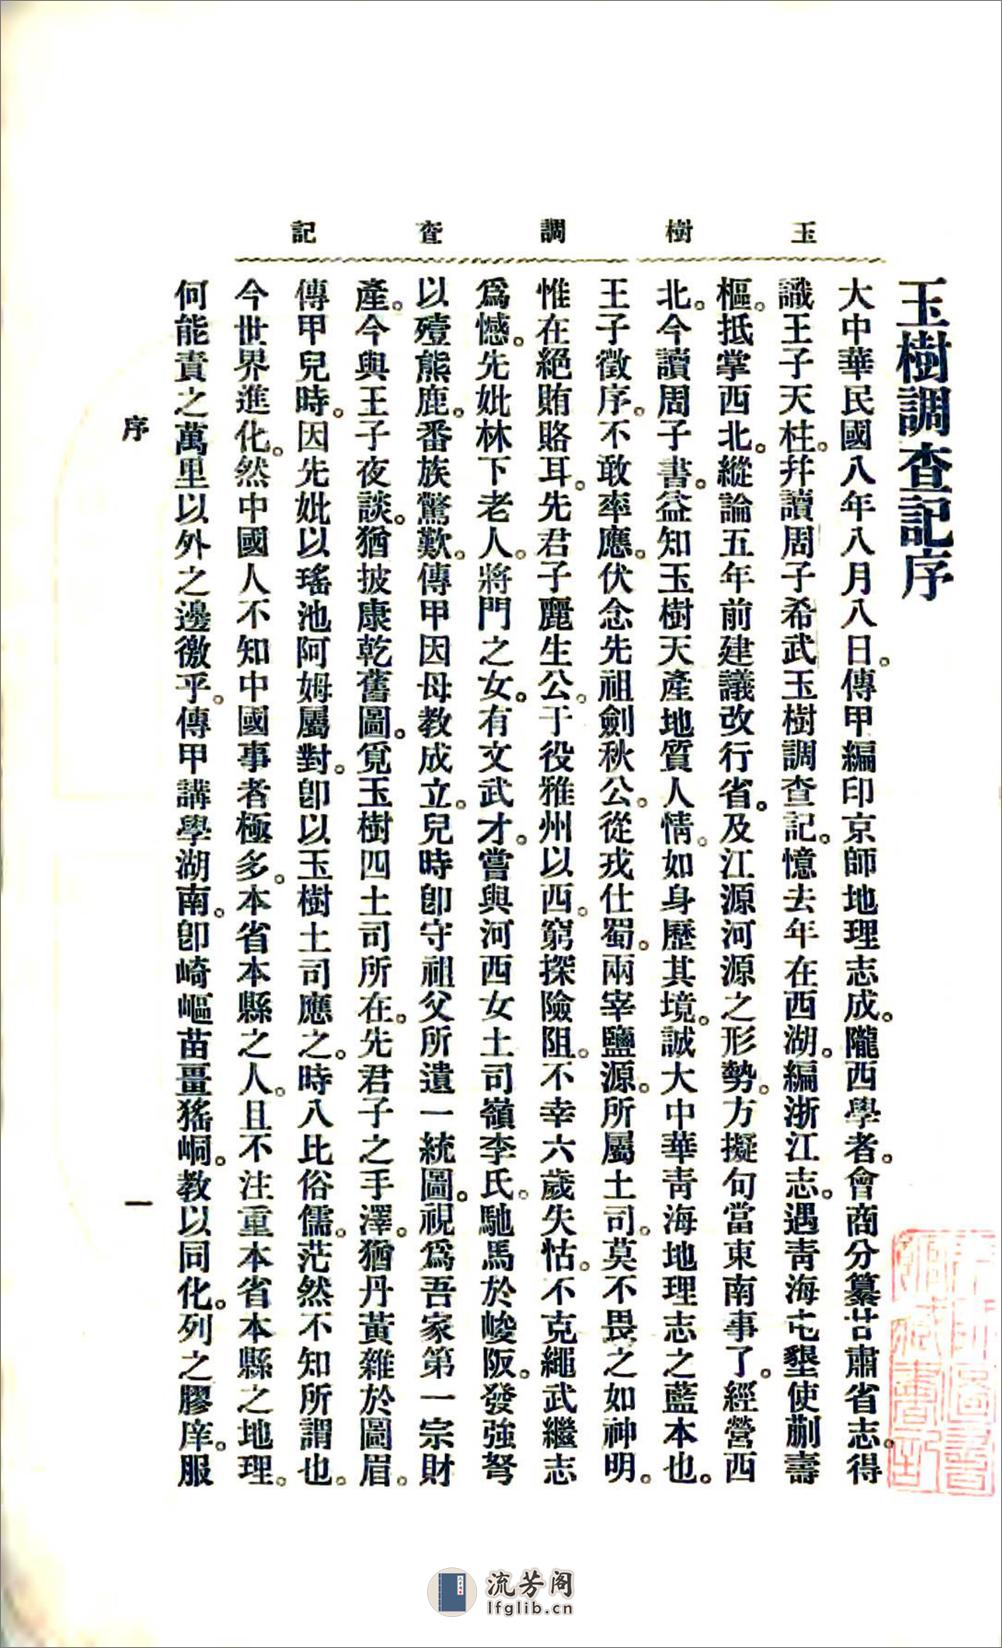 玉樹調查記
玉樹調查記序
大中華民國八年八月八日。傳甲編印京師地理志成。隴西學者。會商分纂甘肅省志。得
識王子天柱。幷讀周子希武玉樹調查記。憶去年在西湖。編浙江志。遇靑海屯墾使蒯壽
樞。抵掌西北。縱論五年前建議改行省。及江源河源之形勢。方擬句當東南事了。經營西
北。今讀周子書。益知玉樹天產地質人情。如身歷其境。誠大中華靑海地理志之藍本也。
王子徵序。不敢率應。伏念先祖劍秋公。從戎仕蜀。兩宰鹽源。所屬土司。莫不畏之如神明。
惟在絕賄賂耳。先君子麗生公。于役雅州以西。窮探險阻。不幸六歲失怙。不克繩武繼志
爲憾。先妣林下老人。將門之女。有文武才。嘗與河西女土司嶺李氏。馳馬於峻阪。發強弩
以殪熊鹿。番族驚歎。傳甲因母教成立。兒時卽守祖父所遺一統圖。視爲吾家第一宗財
產。今與王子夜談。猶披康乾舊圖。覓玉樹四土司所在。先君子之手澤。猶丹黃雜於圖眉。
傳甲兒時。因先妣以瑤池阿姆屬對。卽以玉樹土司應之。時八比俗儒。茫然不知所謂也。
今世界進化。然中國人不知中國事者極多。本省本縣之人。且不注重本省本縣之地理。
何能責之萬里以外之邊徼乎。傳甲講學湖南。卽崎嶇苗畺猺峒。教以同化。列之膠庠。服
序
一
流芳阁
lfglib.cn